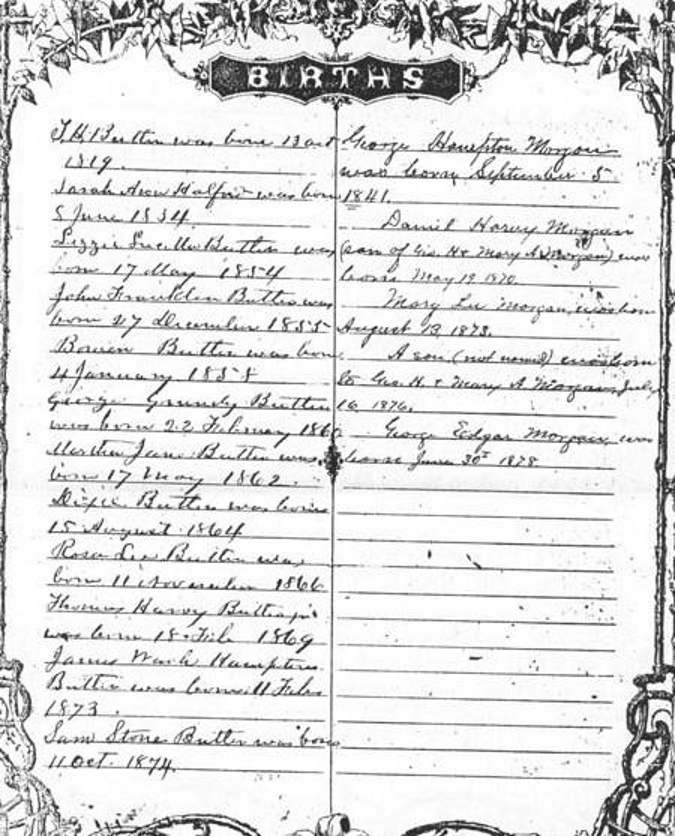 BIRTHS
T.H. Butler was born 13 Oct
1819.
Sarah Ann Halfin was born
5 June 1834.
Lizzie Luella Butler was
born 17 May 1854
John Franklin Butler was
born 27 December 1855
Bowen Butler was born
4 January 1858
George Grundy Butler
was born 22 February 1860
Martha Jane Butler was
born 17 May 1862.
Dixie Butler was born
15 August 1864
Rosa Lee Butler was
born 11 November 1866
Thomas Harvy Butler jr
was born 18 Feb 1869
James Wark Hampton
Butler was born 11 Feb
1873.
Sam Stone Butler was born
11 Oct. 1874.
George Hampton Morgan
was born September 5
1841.
Daniel Harvy Morgan
(son of Geo. H & Mary A Morgan) was
born May 19 1870.
Mary Lee Morgan, was born
August 13, 1873.
A son (not named) was born
to Geo. H. & Mary A. Morgan, July
16 1876.
George Edgar Morgan, was
born June 30 1878